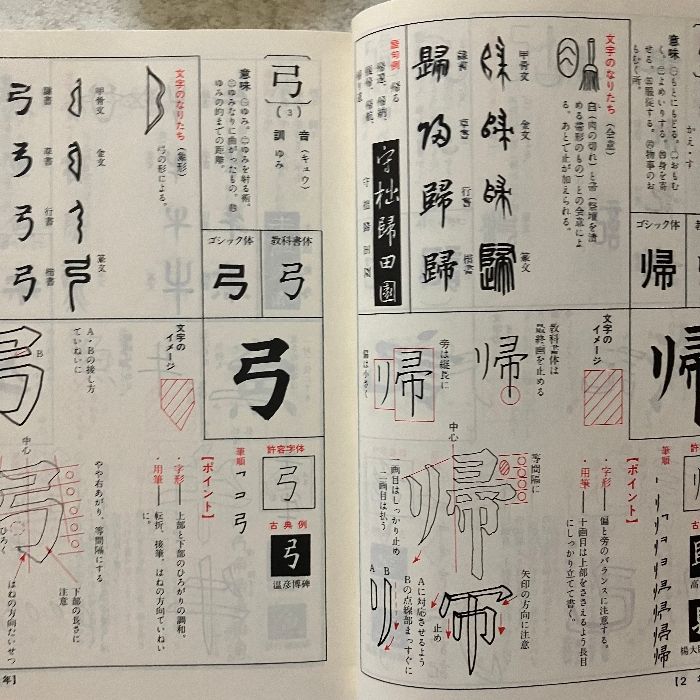 かえ・す
意味 ㊀もとにもどる。㊁おもむ
せる。㊂よめいりする。㊃身を寄
せる。㊄服従する。㊅物事のお
もむく所。
文字のなりたち（会意）
𠂤（肉の切れ）と帚（祭壇を清
める帯形のもの）との会意によ
る。あとで止が加えられる。
甲骨文
金文
篆文
隷書
草書
行書
楷書
語句例
帰る
守拙歸田園
守拙歸田園
ゴシック体
帰
教科書体は
最終画を止める
帰
旁は縦長に
偏は小さく
帰
文字の
イメージ
【ポイント】
・字形――偏と旁のバランスに注意する。
・用筆――十画目は上部をささえるよう長目
にしっかり立てて書く。
筆順
帰
中心
等間隔に
一画目はしっかり止め
二画目は払う
矢印の方向に注意
止め
A
B
Aに対応させるよう
Bの点線部まっすぐに
【2
弓
（3）
音（キュウ）
訓 ゆみ
意味 ㊀ゆみ。㊁ゆみを射る術。
㊂ゆみなりに曲がったもの。㊃
ゆみの的までの距離。
文字のなりたち（象形）
弓の形による。
甲骨文
金文
篆文
隷書
草書
行書
楷書
弓
弓
弓
弓
教科書体
弓
ゴシック体
弓
弓
文字の
イメージ
A・Bの接し方
ていねいに
B
許容字体
弓
筆順
弓
古典例
弓
温彦博碑
【ポイント】
・字形――上部と下部のひろがりの調和。
・用筆――転折、接筆、はねの方向ていねい
に。
中心
やや右あがり、等間隔にする
ひろく
下部の長さに
注意
はねの方向たいせつ
年】